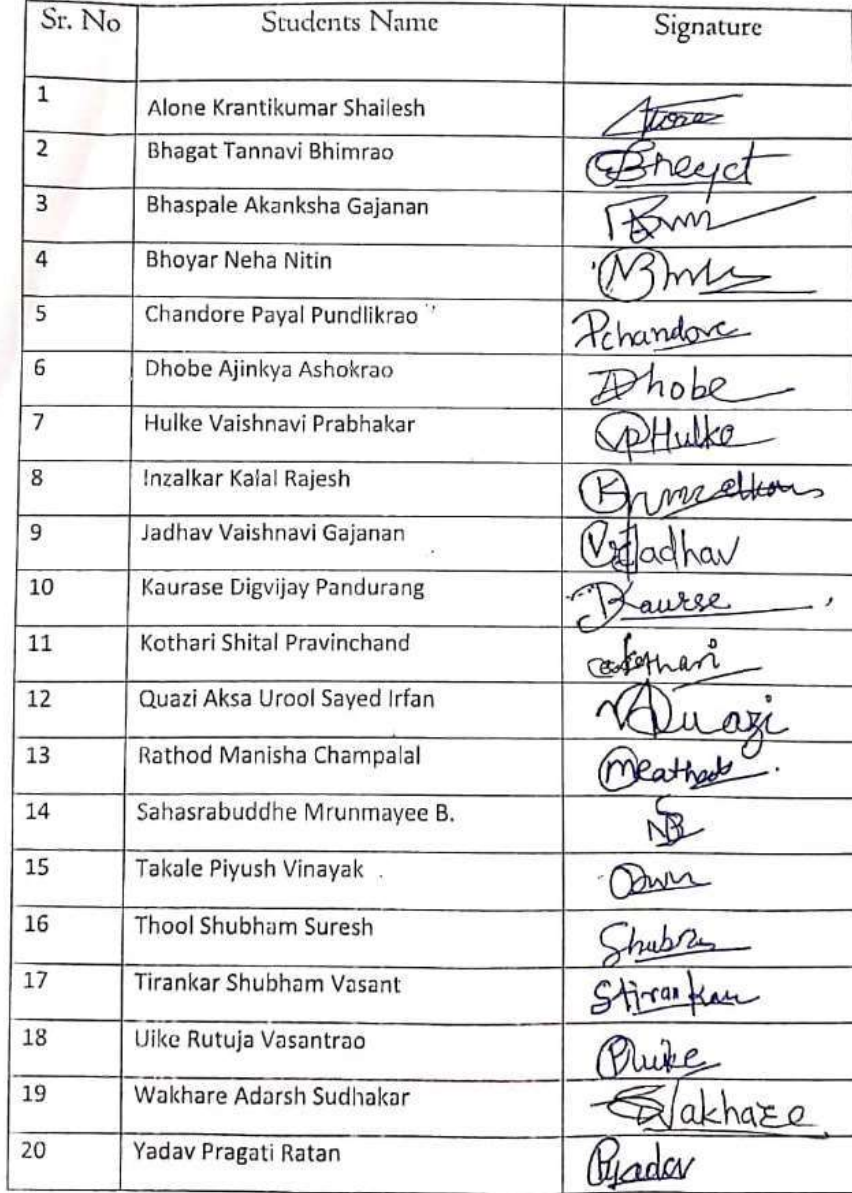 Sr. No Students Name Signature
1 Alone Krantikumar Shailesh
2 Bhagat Tannavi Bhimrao
3 Bhaspale Akanksha Gajanan
4 Bhoyar Neha Nitin
5 Chandore Payal Pundlikrao Pchandore
6 Dhobe Ajinkya Ashokrao ADhobe
7 Hulke Vaishnavi Prabhakar VPHulke
8 Inzalkar Kajal Rajesh
9 Jadhav Vaishnavi Gajanan VGJadhav
10 Kaurase Digvijay Pandurang
11 Kothari Shital Pravinchand
12 Quazi Aksa Urool Sayed Irfan AQuazi
13 Rathod Manisha Champalal
14 Sahasrabuddhe Mrunmayee B.
15 Takale Piyush Vinayak
16 Thool Shubham Suresh
17 Tirankar Shubham Vasant Stirankar
18 Uike Rutuja Vasantrao Ruike
19 Wakhare Adarsh Sudhakar Wakhare
20 Yadav Pragati Ratan Pyadav